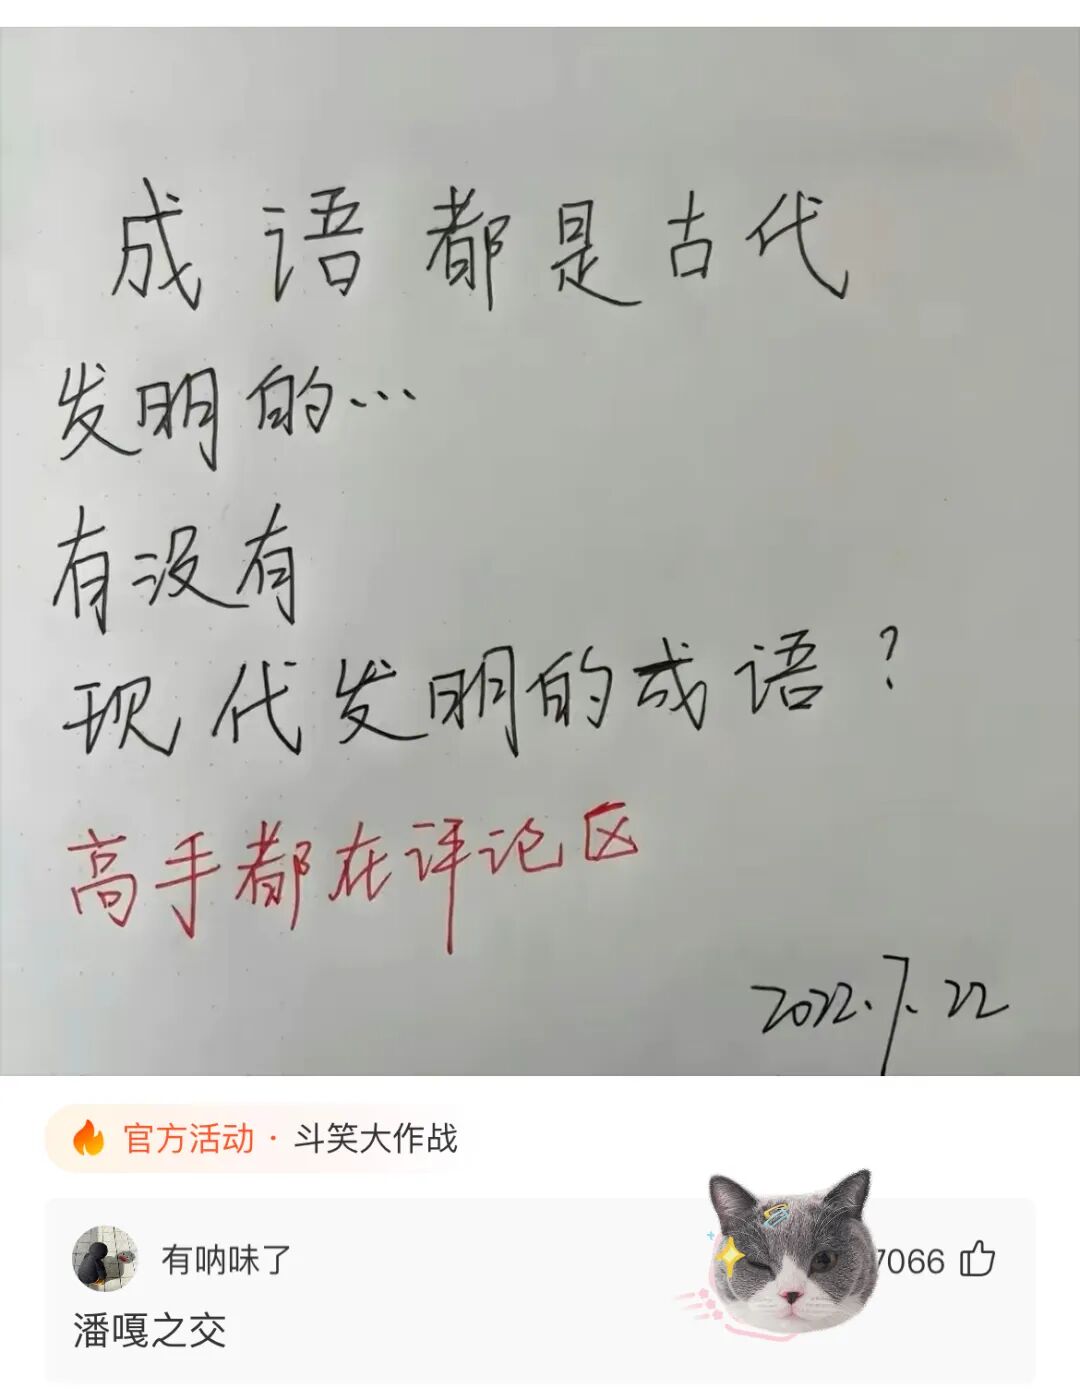 成语都是古代
发明的…
有没有
现代发明的成语?
高手都在评论区
2022.7.22
官方活动·斗笑大作战
有呐味了
7066
潘嘎之交